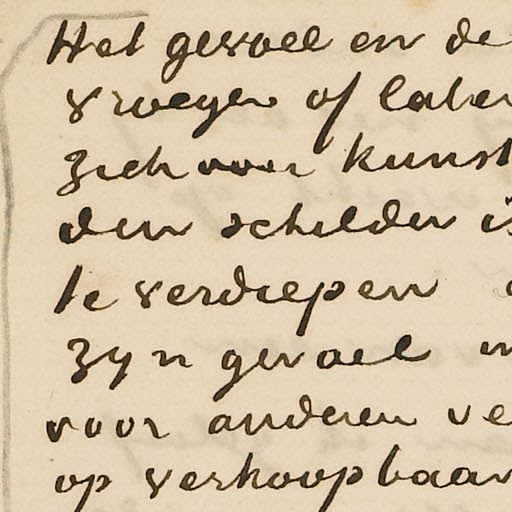 Het gevoel en de
vroeger of later
zich voor kunst
den schilder is
te verdiepen
zyn gevoel
voor anderen ve
op verkoopbaar